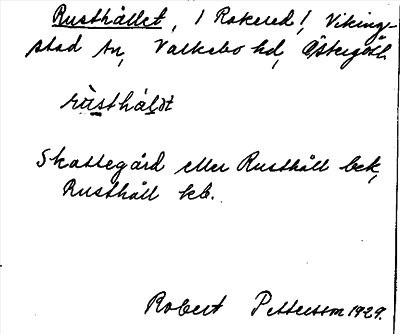 Rusthållet, 1 Rakered, Viking-
stad sn, Valkebo hd, Östergötl.
rùsthål̥t
Skattegård eller Rusthåll bek,
Rusthåll kb.
Robert Pettersson 1929.